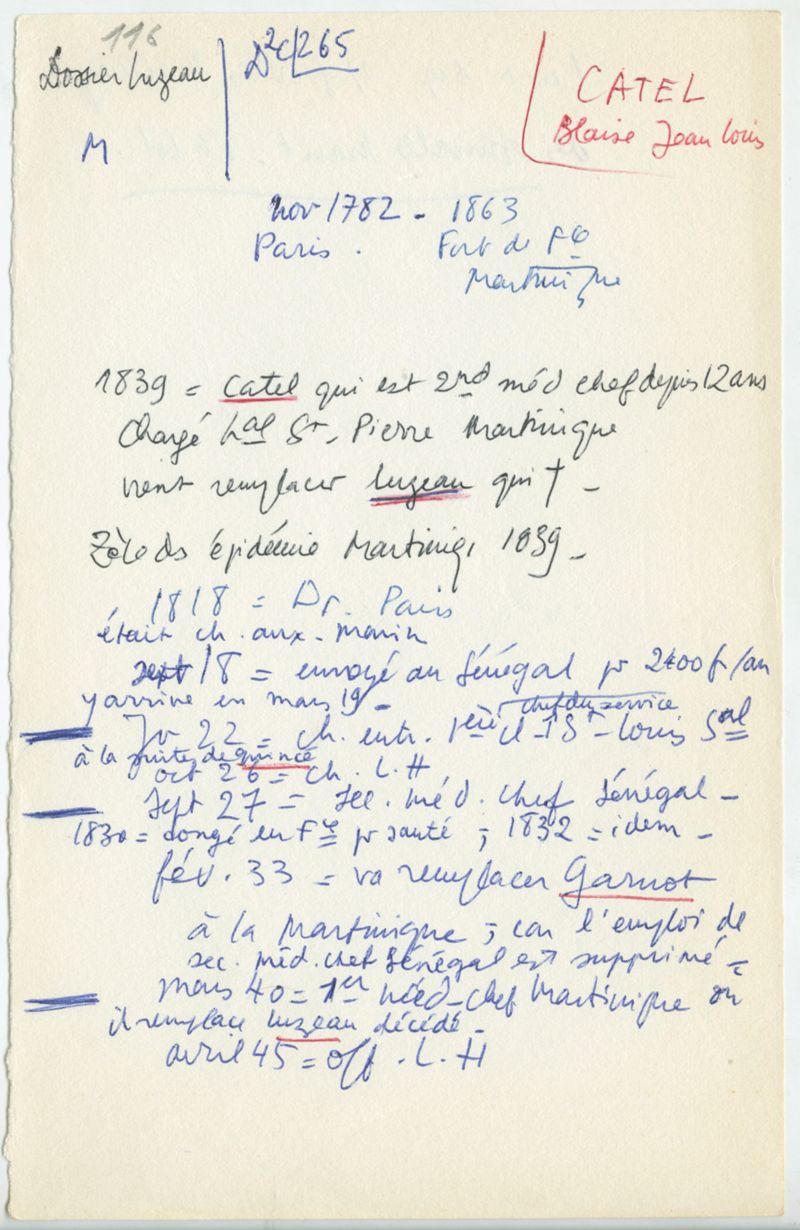 116
Dossier Luzeau
M
D²c/265
CATEL
Blaise Jean Louis
nov 1782 - 1863
Paris . Fort de Fce
Martinique
1839 = Catel qui est 2nd méd chef depuis 12 ans
Chargé hal St-Pierre Martinique
vient remplacer Luzeau qui † -
Zèle ds épidémie Martiniq. 1839 -
1818 = Dr. Paris
était ch. aux. marin
sept 18 = envoyé au Sénégal pr 2400 f/an
y arrive en mars 19 -
chef du service
Jr 22 = ch. entr. 1ère cl - St-Louis Sal
à la suite de Quincé
oct 26 = Ch. L.H
sept 27 = sec. méd. chef Sénégal -
1830 = congé en Fce pr santé ; 1832 = idem -
fév. 33 = va remplacer Garnot
à la Martinique ; car l'emploi de
sec. méd. chef Sénégal est supprimé -
mars 40 = 1er méd-chef Martinique où
il remplace Luzeau décédé -
avril 45 = off. L.H